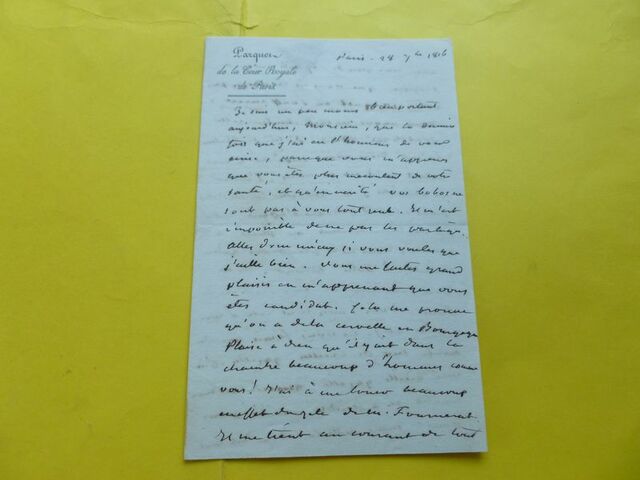 Parquet
de la Cour Royale
de Paris
Paris - 28 7bre 1816
Je suis un peu moins bien portant
aujourd'hui, Monsieur, que la dernière
fois que j'ai eu l'honneur de vous
parceque vous m'apprenez
que vous êtes plus mécontent de votre
santé, et qu'en vérité vos bobos ne
sont pas à vous tout seul. Il m'est
impossible de ne pas les partager.
Allez donc mieux si vous voulez que
j'aille bien. Vous me faites grand
plaisir en m'apprenant que vous
êtes candidat. Cela me prouve
qu'on a de la cervelle en Bourgogne
Plaise à dieu qu'il y ait dans la
chambre beaucoup d'hommes comme
vous! J'ai à me louer beaucoup
en effet du zèle de Mr. Fournerat.
Il me tient au courant de tout